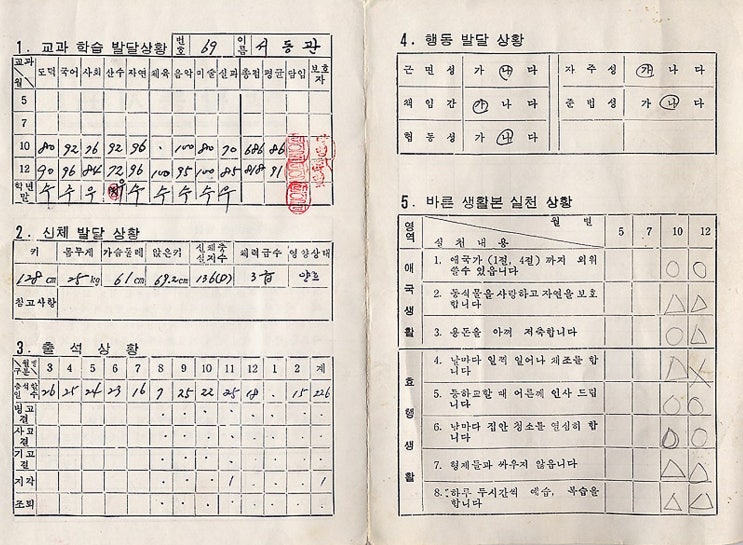 1. 교과 학습 발달상황 번호 69 이름 서동관
교과 월 도덕 국어 사회 산수 자연 체육 음악 미술 실과 총점 평균 담임 보호자
5
7
10 80 92 76 92 96 · 100 80 70 686 86
12 90 96 84 72 96 100 95 100 85 818 91
학년말 수 수 우 수 수 수 수 우
2. 신체 발달 상황
키 몸무게 가슴둘레 앉은키 신체충실지수 체력급수 영양상태
128 cm 25 kg 61 cm 69.2 cm 136(D) 3급 양호
참고사항
3. 출석상황
월별 구분 3 4 5 6 7 8 9 10 11 12 1 2 계
출석한일수 26 25 24 23 16 7 25 22 25 18 · 15 226
병고결 · · · · · · ·
사고결 · · · · · · ·
기고결 · · · · · · ·
지각 · · · 1 · · · 1
조퇴 · · · · · · ·
4. 행동 발달 상황
근면성 가 나 다 자주성 가 나 다
책임감 가 나 다 준법성 가 나 다
협동성 가 나 다
5. 바른 생활본 실천 상황
영역 월별 실천내용 5 7 10 12
애국생활
1. 애국가 (1절, 4절) 까지 외워
쓸수 있읍니다
2. 동식물을 사랑하고 자연을 보호
합니다
3. 용돈을 아껴 저축합니다
효행생활
4. 날마다 일찍 일어나 체조를 합
니다
5. 등하교할 때 어른께 인사 드립
니다
6. 날마다 집안 청소를 열심히 합
니다
7. 형제들과 싸우지 않읍니다
8. 하루 두시간씩 예습, 복습을
합니다